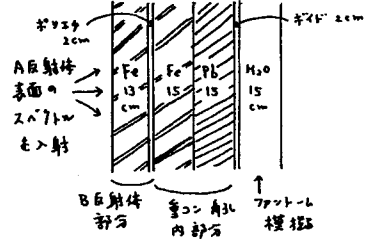 ポリエチ
2cm
ボイド 2cm
A反射体
表面の
スペクトル
を入射
Fe
13
cm
Fe
15
Pb
15
H₂O
15
cm
B反射体
部分
重コン
内部分
ファントーム
模擬